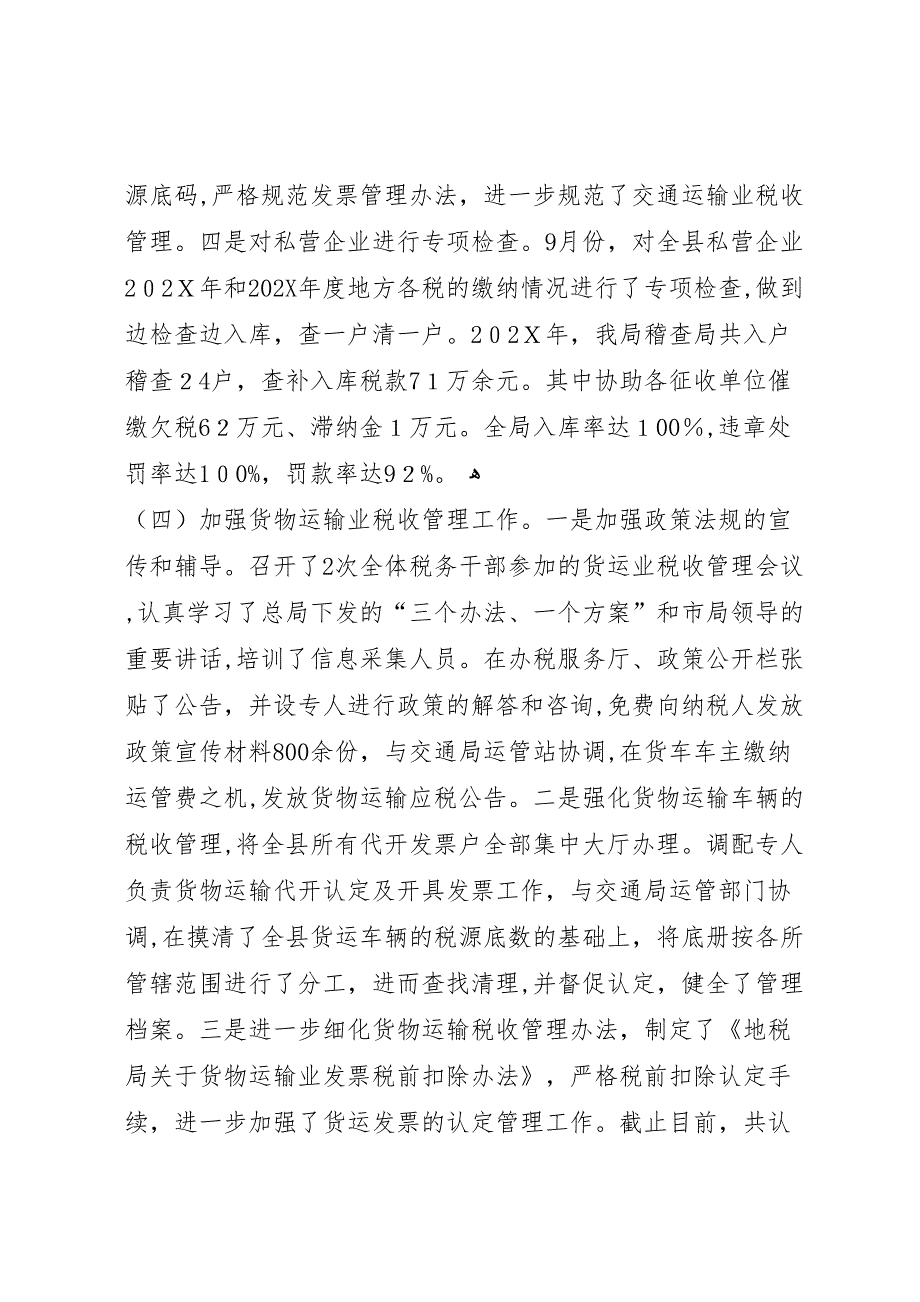 源底码,严格规范发票管理办法，进一步规范了交通运输业税收
管理。四是对私营企业进行专项检查。9月份，对全县私营企业
202X年和202X年度地方各税的缴纳情况进行了专项检查,做到
边检查边入库，查一户清一户。202X年，我局稽查局共入户
稽查24户，查补入库税款71万余元。其中协助各征收单位催
缴欠税62万元、滞纳金1万元。全局入库率达100%,违章处
罚率达100%，罚款率达92%。ﻫ
（四）加强货物运输业税收管理工作。一是加强政策法规的宣
传和辅导。召开了2次全体税务干部参加的货运业税收管理会议
,认真学习了总局下发的“三个办法、一个方案”和市局领导的
重要讲话,培训了信息采集人员。在办税服务厅、政策公开栏张
贴了公告，并设专人进行政策的解答和咨询,免费向纳税人发放
政策宣传材料800余份，与交通局运管站协调,在货车车主缴纳
运管费之机,发放货物运输应税公告。二是强化货物运输车辆的
税收管理,将全县所有代开发票户全部集中大厅办理。调配专人
负责货物运输代开认定及开具发票工作，与交通局运管部门协
调,在摸清了全县货运车辆的税源底数的基础上，将底册按各所
管辖范围进行了分工，进而查找清理,并督促认定，健全了管理
档案。三是进一步细化货物运输税收管理办法，制定了《地税
局关于货物运输业发票税前扣除办法》，严格税前扣除认定手
续，进一步加强了货运发票的认定管理工作。截止目前，共认